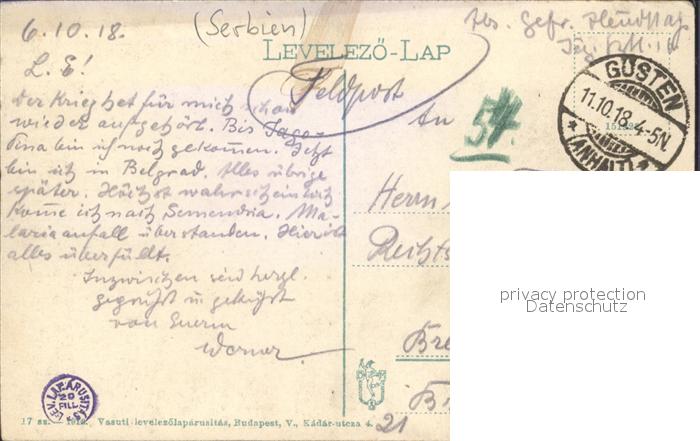 6.10.18.
(Serbien)
Abs. Gefr.
LEVELEZŐ-LAP
Feldpost
L. E!
GÜSTEN
11.10.18.4-5N.
(ANHALT)
Der Krieg hat für mich schon
wieder aufgehört. Bis Jago-
dina bin ich noch gekommen. Jetzt
bin ich in Belgrad. Alles übrige
später. Höchst wahrscheinlich
komme ich nach Semendria. Ma-
lariaanfall überstanden. Hier ist
alles überfüllt.
Inzwischen seid herzl.
gegrüßt u geküßt
von Euerm
Werner.
An
54
Herrn
privacy protection
Datenschutz
LEV. LAP ÁRUSITÁS
20
FILL.
17 sz. — 1918. Vasuti levelezőlapárusitás, Budapest, V., Kádár-utcza 4.
21